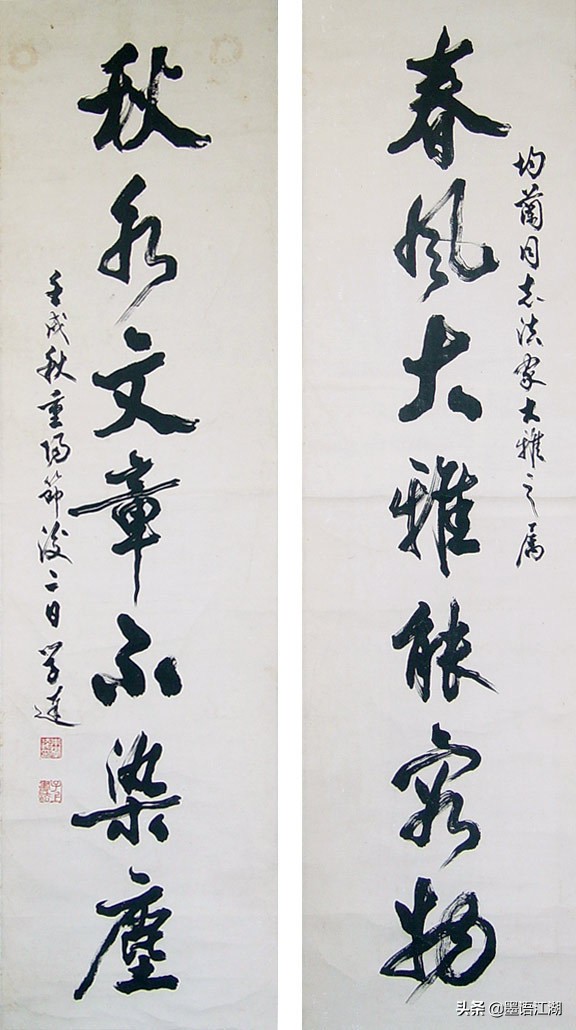 均蘭同志法家大雅之属
春風大雅能容物
秋水文章不染塵
壬戌秋重陽節後二日学達
头条 @墨语江湖